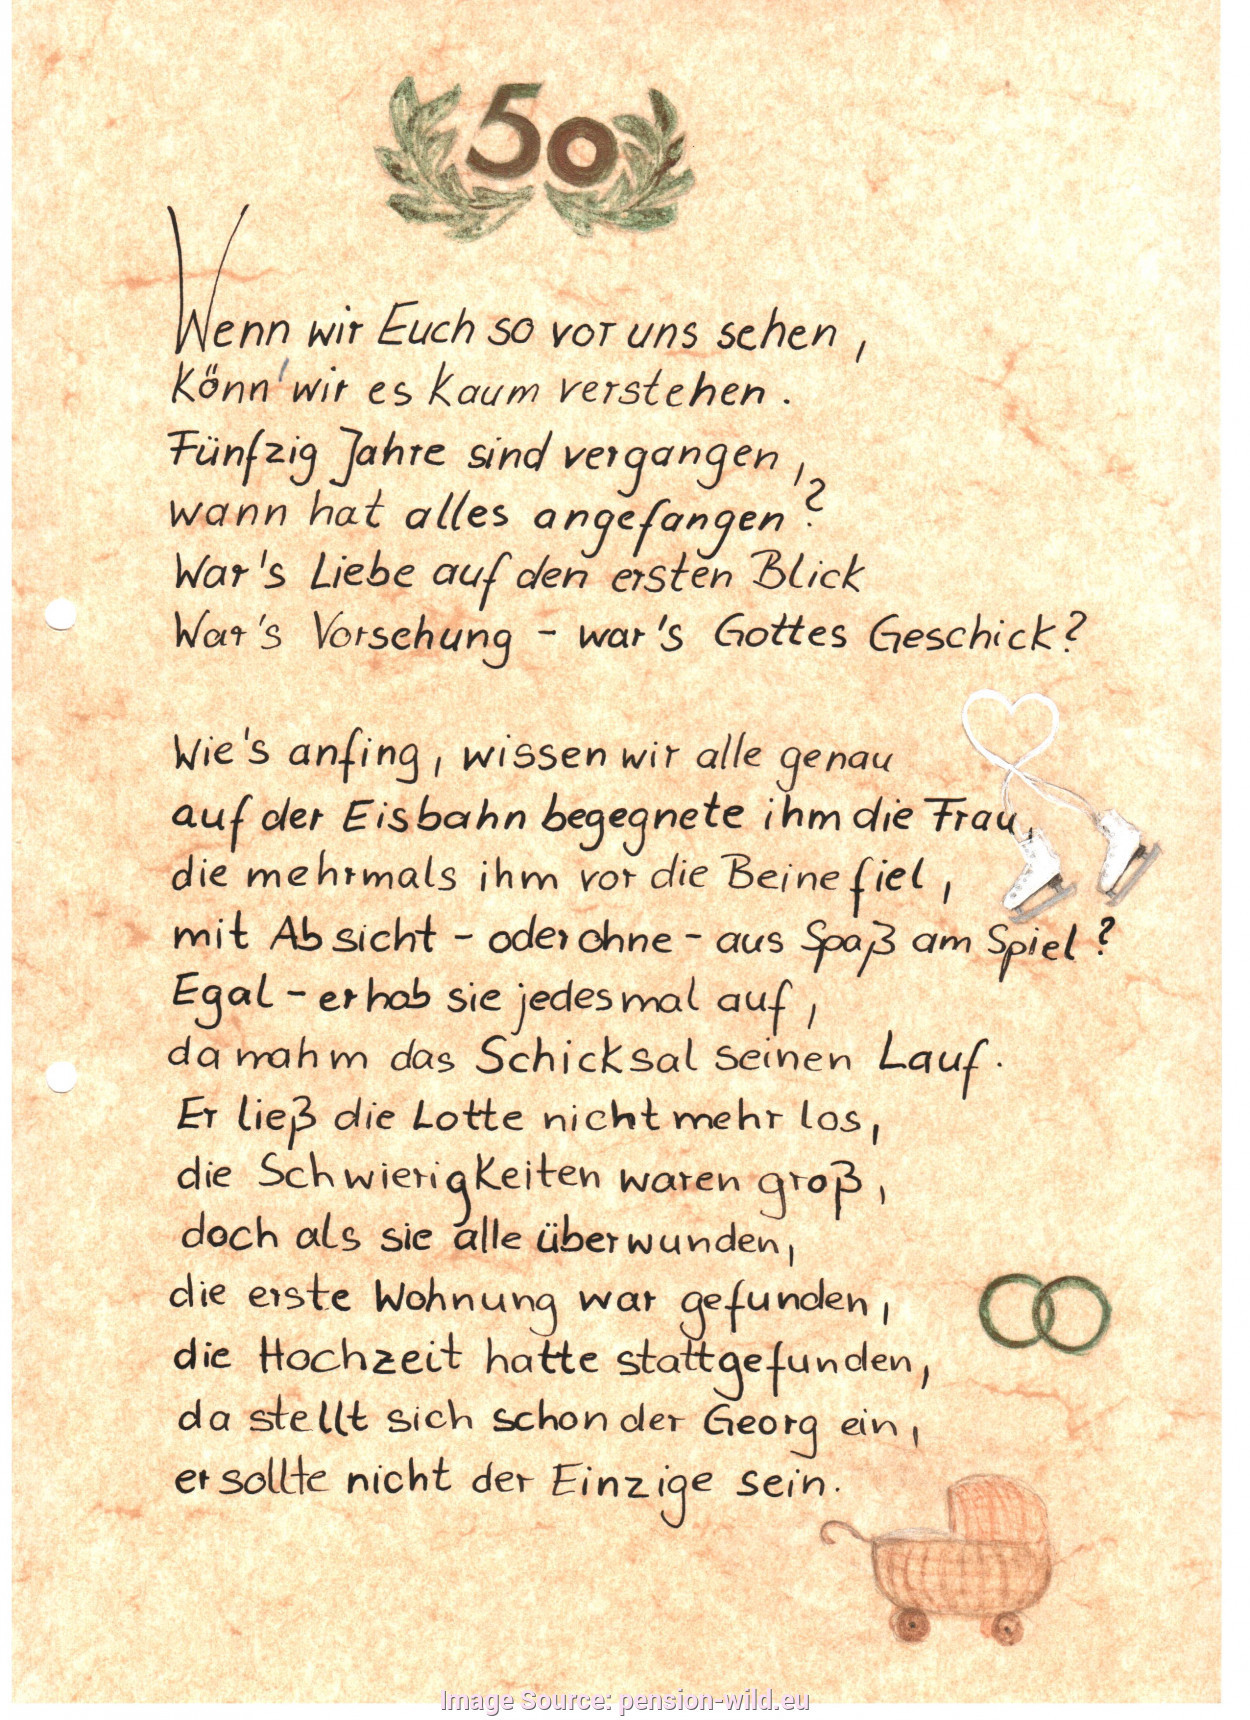 50
Wenn wir Euch so vor uns sehen,
Könn' wir es kaum verstehen.
Fünfzig Jahre sind vergangen,
wann hat alles angefangen?
War's Liebe auf den ersten Blick
War's Vorsehung - war's Gottes Geschick?
Wie's anfing, wissen wir alle genau
auf der Eisbahn begegnete ihm die Frau,
die mehrmals ihm vor die Beine fiel,
mit Absicht - oder ohne - aus Spaß am Spiel?
Egal - er hob sie jedesmal auf,
da nahm das Schicksal seinen Lauf.
Er ließ die Lotte nicht mehr los,
die Schwierigkeiten waren groß,
doch als sie alle überwunden,
die erste Wohnung war gefunden,
die Hochzeit hatte stattgefunden,
da stellt sich schon der Georg ein,
er sollte nicht der Einzige sein.
Image Source: pension-wild.eu